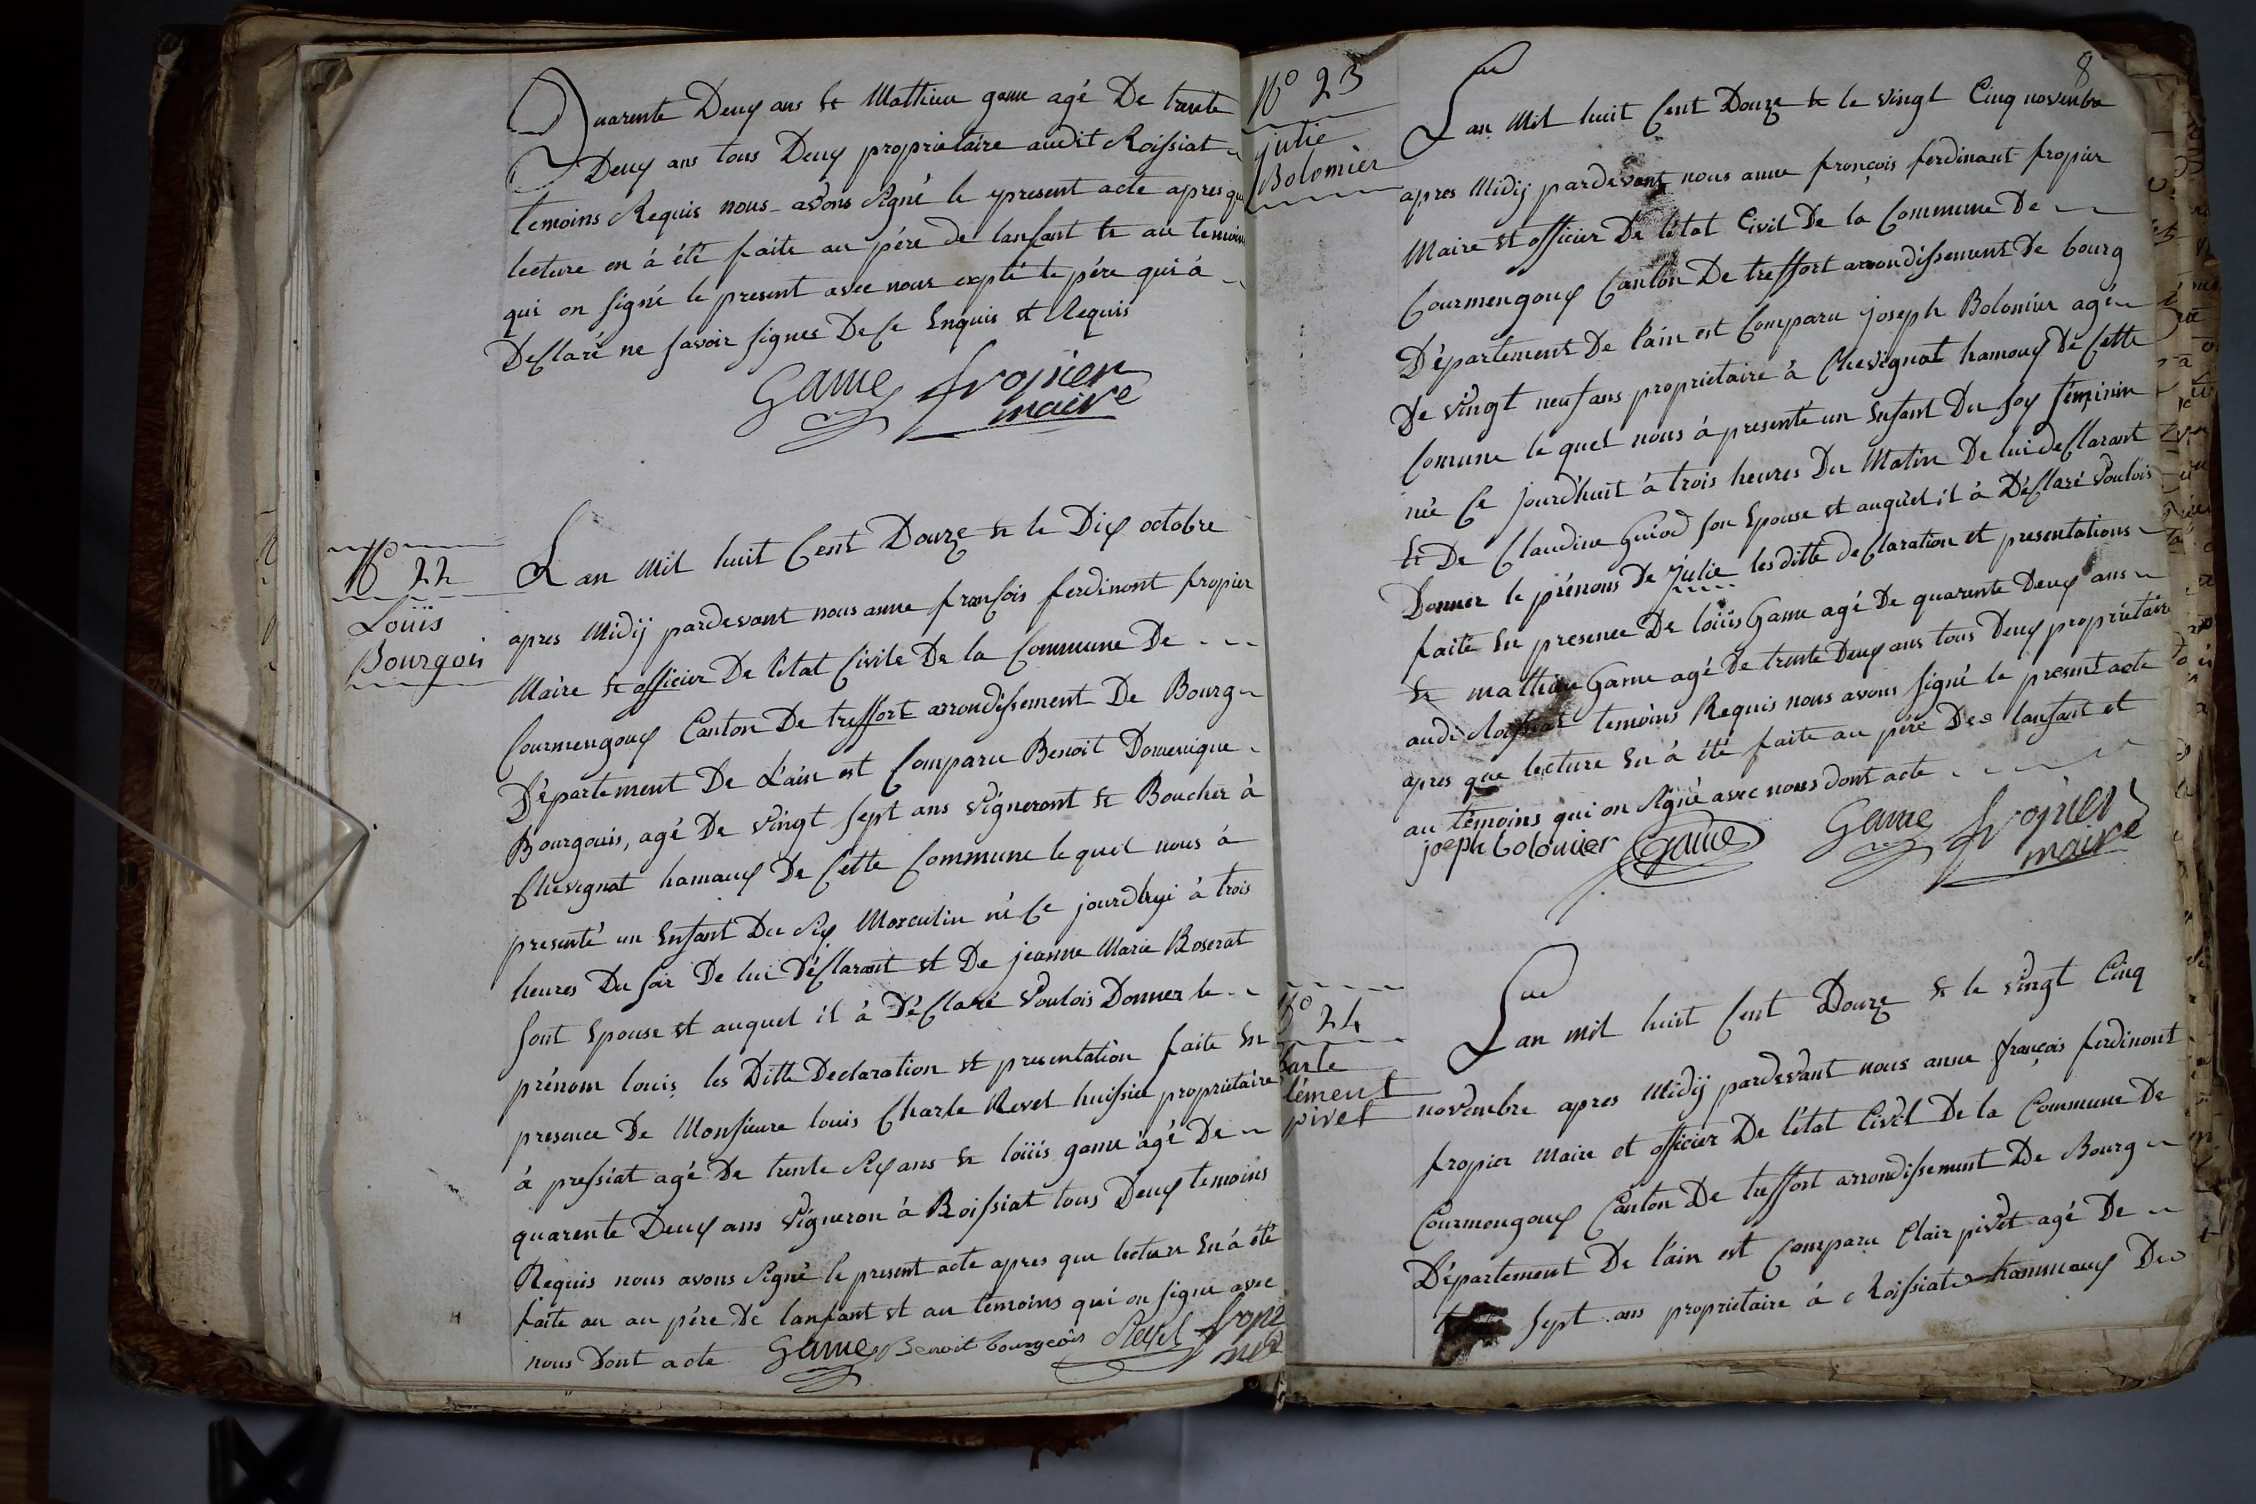 Quarente Deux ans & Mathieu game agé De trente
Deux ans tous Deux proprietaire audit Roissiat
temoins Requis nous avons Signé le present acte apres que
lecture en á été faite au pére de lanfant & au temoins
qui on signé le present avec nous expté le pére qui á
Declaré ne savoir signer De Ce Enquis et Requis
Game fropier
maire
N° 22
Loüis
Bourgois
Lan Mil huit Cent Douze & le Dix octobre
apres Midÿ pardevant nous anne fransois ferdinont fropier
Maire & officier De létat Civile De la Commune De
Courmengoux Canton De treffort arrondissement De Bourg
Département De L'ain est Comparu Benoit Domenique
Bourgouis, agé De Vingt sept ans Vigneront & Boucher á
Chevignat hamaux De Cette Commune le quel nous á
presenté un Enfant Du Sex Masculin né Ce jourdhui á trois
heures Du soir De lui Déclarant et De jeanne Marie Roserat
sont Epouse et auquel il á Déclaré Voulois Donner le
prénom louis, les Ditte Declaration et presentation faite En
presence De Monsieure louis Charle Revel huissier proprietaire
á pressiat agé De trente Six ans & loüis game agé De
quarente Deux ans Vigneron á Roissiat tous Deux temoins
Requis nous avons Signé le present acte apres que lecture En á été
faite au au pére De lanfant et au temoins qui on signé avec
nous Dont acte Game Benoit bourgeois Revel fropier
N° 23
julie
Bolomier
8
Lan Mil huit Cent Douze & le Vingt Cinq novembre
apres Midÿ pardevant nous anne françois ferdinant fropier
Maire et officier De létat Civil De la Commune De
Courmengoux Canton De treffort arrondissement De bourg
Département De l'ain est Comparu joseph Bolomier agé
De Vingt neuf ans proprietaire á Chevignat hamoux De Cette
Comune le quel nous á presenté un Enfant Du sex féminin
née Ce jourd'huit á trois heures Du Matin De lui declarant
& De Claudine Guiod son Epouse et auquel il á Déclaré Voulois
Donner le prénons De Julie les ditte declaration et presentations
faite En presence De loüis Game agé De quarente Deux ans
& mathieu Game agé De trente Deux ans tous Deux proprietaire
audi Roissiat temoins Requis nous avons signé le present acte
apres que lecture En á été faite au pére De lanfant et
au temoins qui on Signé avec nous dont acte
joseph bolomier Game Game fropier
maire
N° 24
lement
pivet
Lan mil huit Cent Douze & le Vingt Cinq
novembre apres Midÿ pardevant nous anne françois ferdinont
fropier Maire et officier De létat Civil De la Commune De
Courmengoux Canton De treffort arrondissement De Bourg
Département De l'ain est Comparu Clair pivet agé De
sept ans proprietaire á Roissiat hammaux De